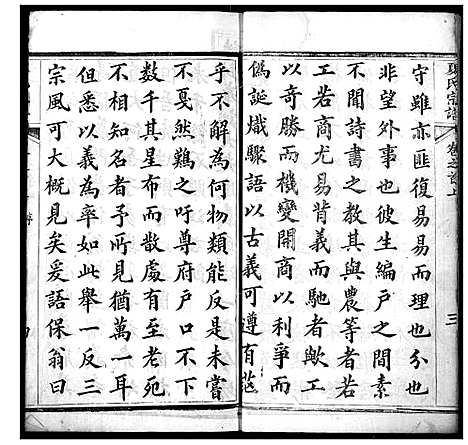 氏宗譜 卷之首上
三
守雖亦匪復易易而理也分也
非望外事也彼生編戶之間素
不聞詩書之教其與農等者若
工若商尤易背義而馳者歟工
以奇勝而機變開商以利爭而
僞誕熾驟語以古義可遵有
乎不解為何物類能反是未嘗
不戛然難之吁尊府戶口不下
數千其星布而散處有至老死
不相知名者予所見猶萬一耳
但悉以義為率如此舉一反三
宗風可大概見矣爰語保翁曰